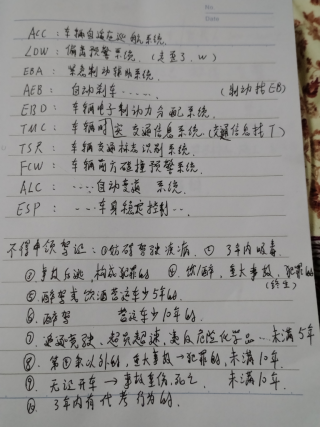 No.
Date
ACC：车辆自适应巡航系统
LDW：偏离预警系统（走歪了，w）
EBA：紧急制动辅助系统
AEB：自动刹车……（制动找EB）
EBD：车辆电子制动力分配系统
TMC：车辆 交通信息系统（交通信息找T）
TSR：车辆交通标志识别系统
FCW：车辆前方碰撞预警系统
ALC：……自动变道 系统
ESP：……车身稳定控制……
不得申领驾证：①妨碍驾驶疾病 ② 3年内吸毒
③肇事逃逸，构成犯罪的 ④饮/醉，重大事故，犯罪的
（终生）
⑤醉驾或饮酒营运车少5年的
⑥醉驾 营运车少10年的
⑦追逐竞驶、超员超速，违反危险化学品…未满5年
⑧第④条以外的，重大事故→犯罪的，未满10年
⑨无证开车→事故重伤，死亡 未满10年
⑩3年内有代考行为的